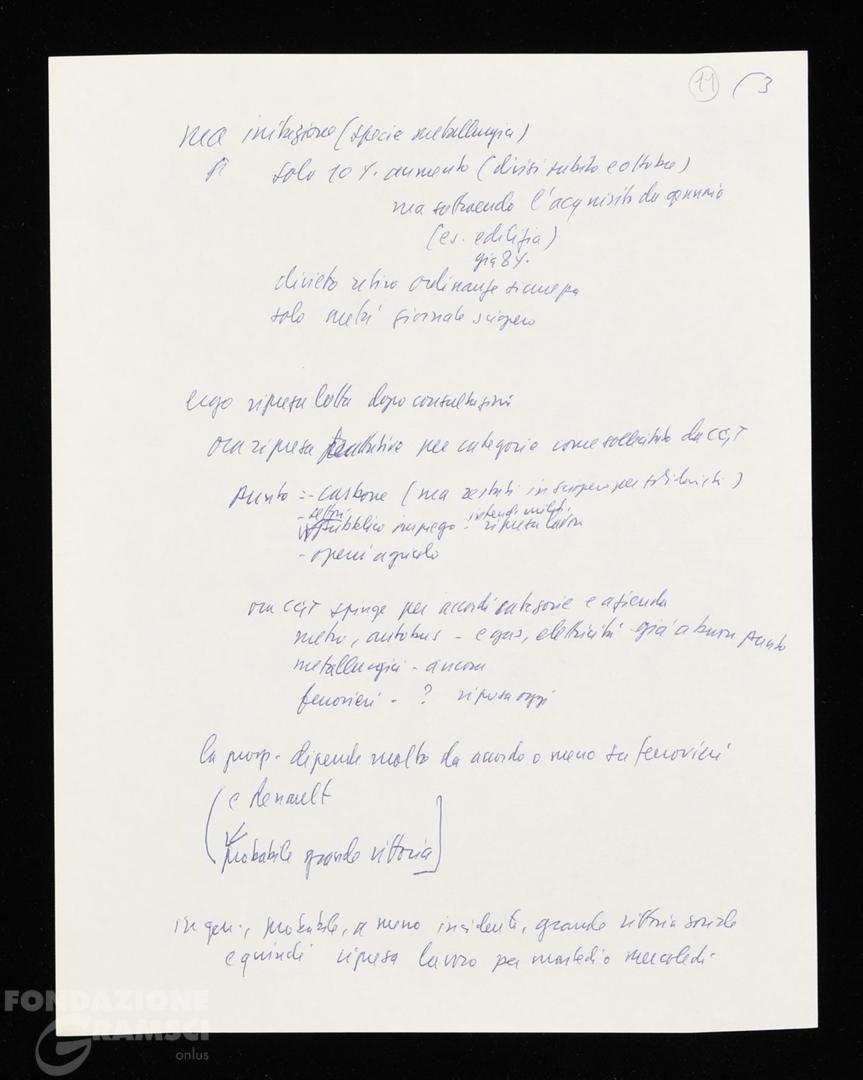 11 3
ma irritazione (specie metallurgia)
solo 10 %. aumento (divisi subito e ottobre)
ma sottraendo l'acquisito da gennaio
(es. edilizia)
già 8 %.
divieto ritiro ordinanze
solo metà giornate sciopero
ergo ripresa lotta dopo consultazioni
ora ripresa trattative per categorie come sollecitato da CGT
Punto = - carbone (ma restati in sciopero per solidarietà)
- settori
pubblico impiego : ripresa lavoro
- operai agricolo
ora CGT spinge per accordi categorie e azienda
metro, autobus - e gas, elettricità già a buon punto
metallurgici - ancora
ferrovieri - ? ripresa oggi
la prosp. dipende molto da accordo o meno su ferrovieri
e Renault
probabile grande vittoria
in gen., probabile, a meno incidenti, grande vittoria sociale
e quindi ripresa lavoro per martedì o mercoledì
FONDAZIONE
GRAMSCI
onlus